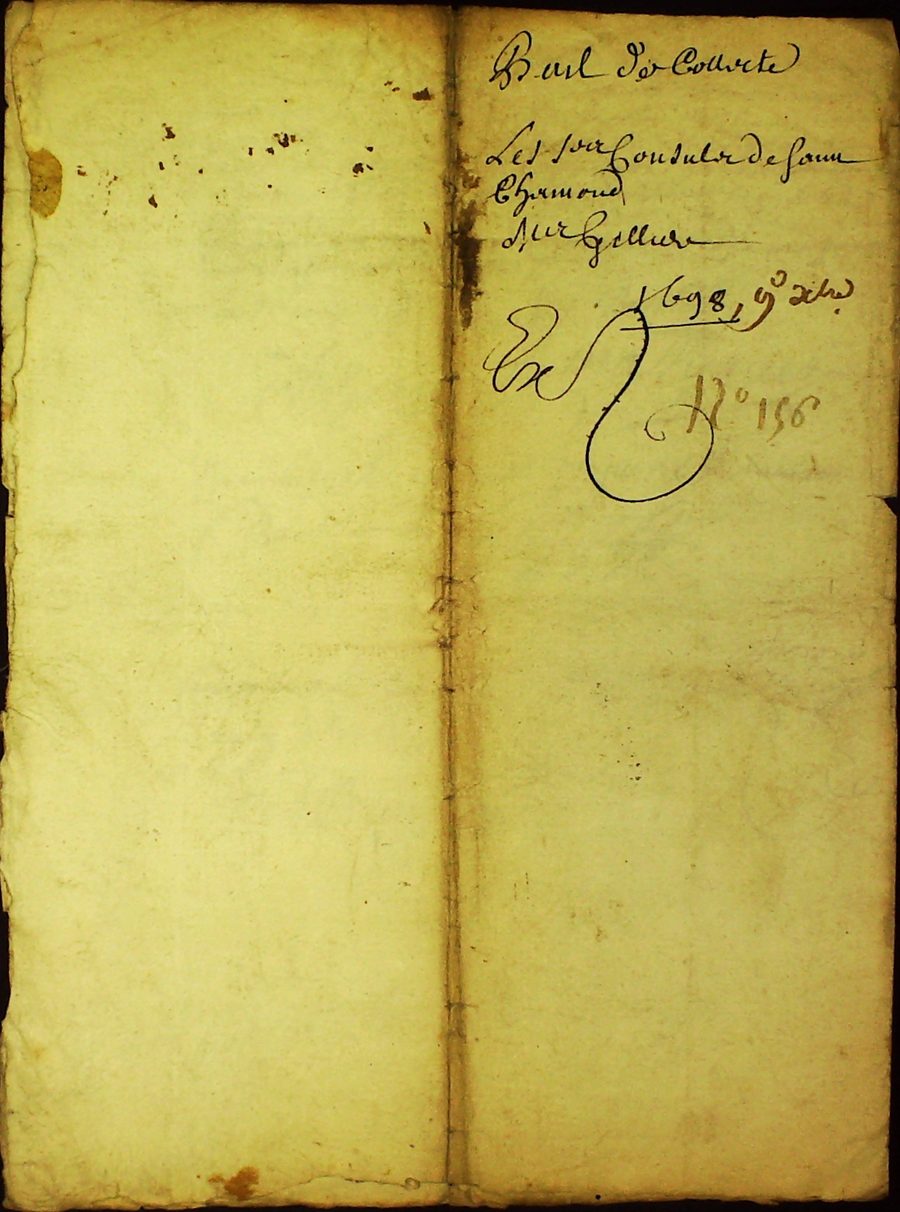 Bail de Collecte
Les srs Consuls de Saint
Chamond
Sur Gellier
1698, 9e xbre
Ex
N° 156